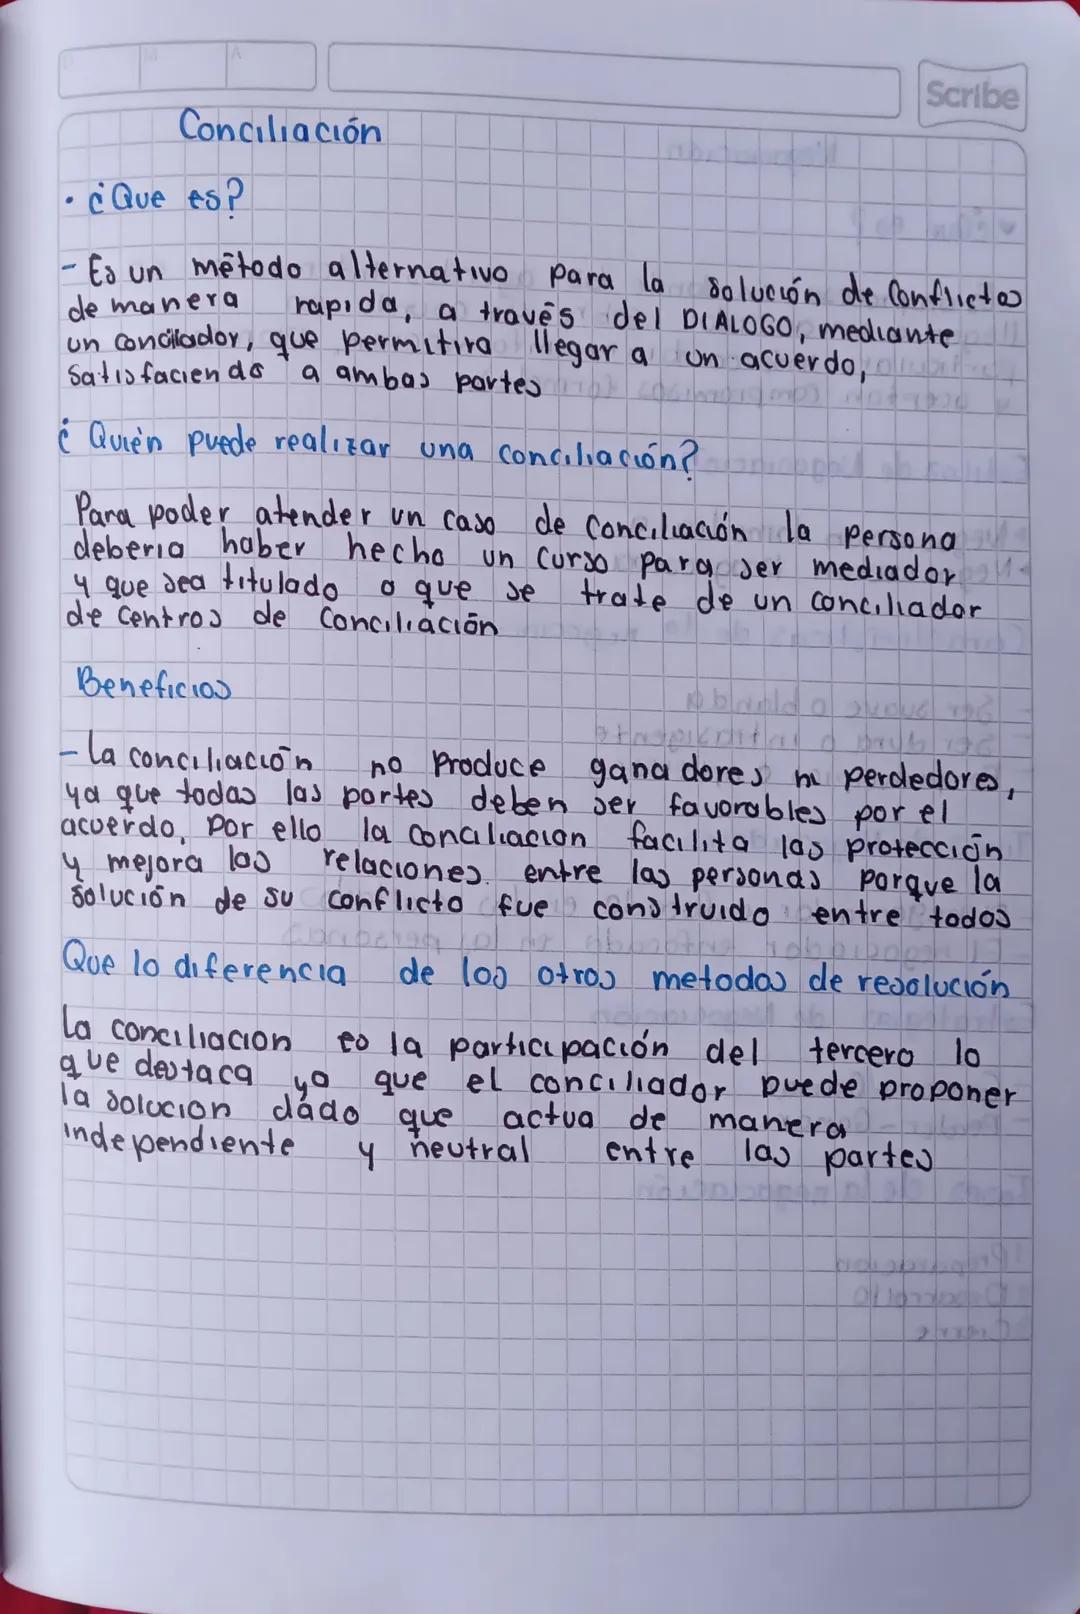 D M A
Scribe
Conciliación
· ¿Que es?
- Es un método alternativo para la solución de conflictos
de manera rapida, a través del DIALOGO, mediante
un conciliador, que permitira llegar a un acuerdo,
satisfaciendo a ambas partes
¿Quién puede realizar una conciliación?
Para poder atender un caso de conciliación la persona
deberia haber hecho un curso para ser mediador
y que sea titulado o que se trate de un conciliador
de centros de conciliación
Beneficios
- La conciliación no produce ganadores ni perdedores,
ya que todas las partes deben ser favorables por el
acuerdo, por ello la conciliacion facilita las protección
y mejora las relaciones entre las personas porque la
solución de su conflicto fue construido entre todos
Que lo diferencia de los otros metodos de resolución
La conciliacion es la participación del tercero lo
que destaca ya que el conciliador puede proponer
la solucion dado que actua de manera
independiente y neutral entre las partes